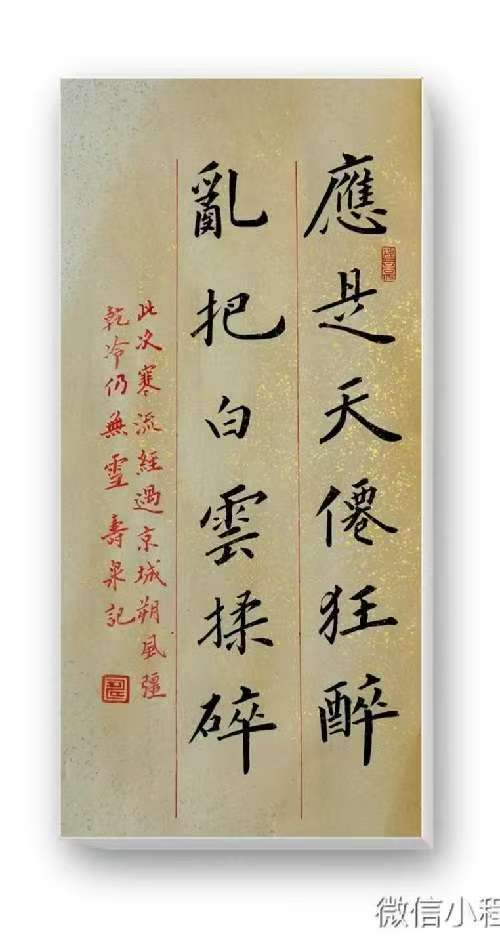 應是天僊狂醉
亂把白雲揉碎
此次寒流經過京城朔風彊
乾冷仍無雪壽泉記
微信小程